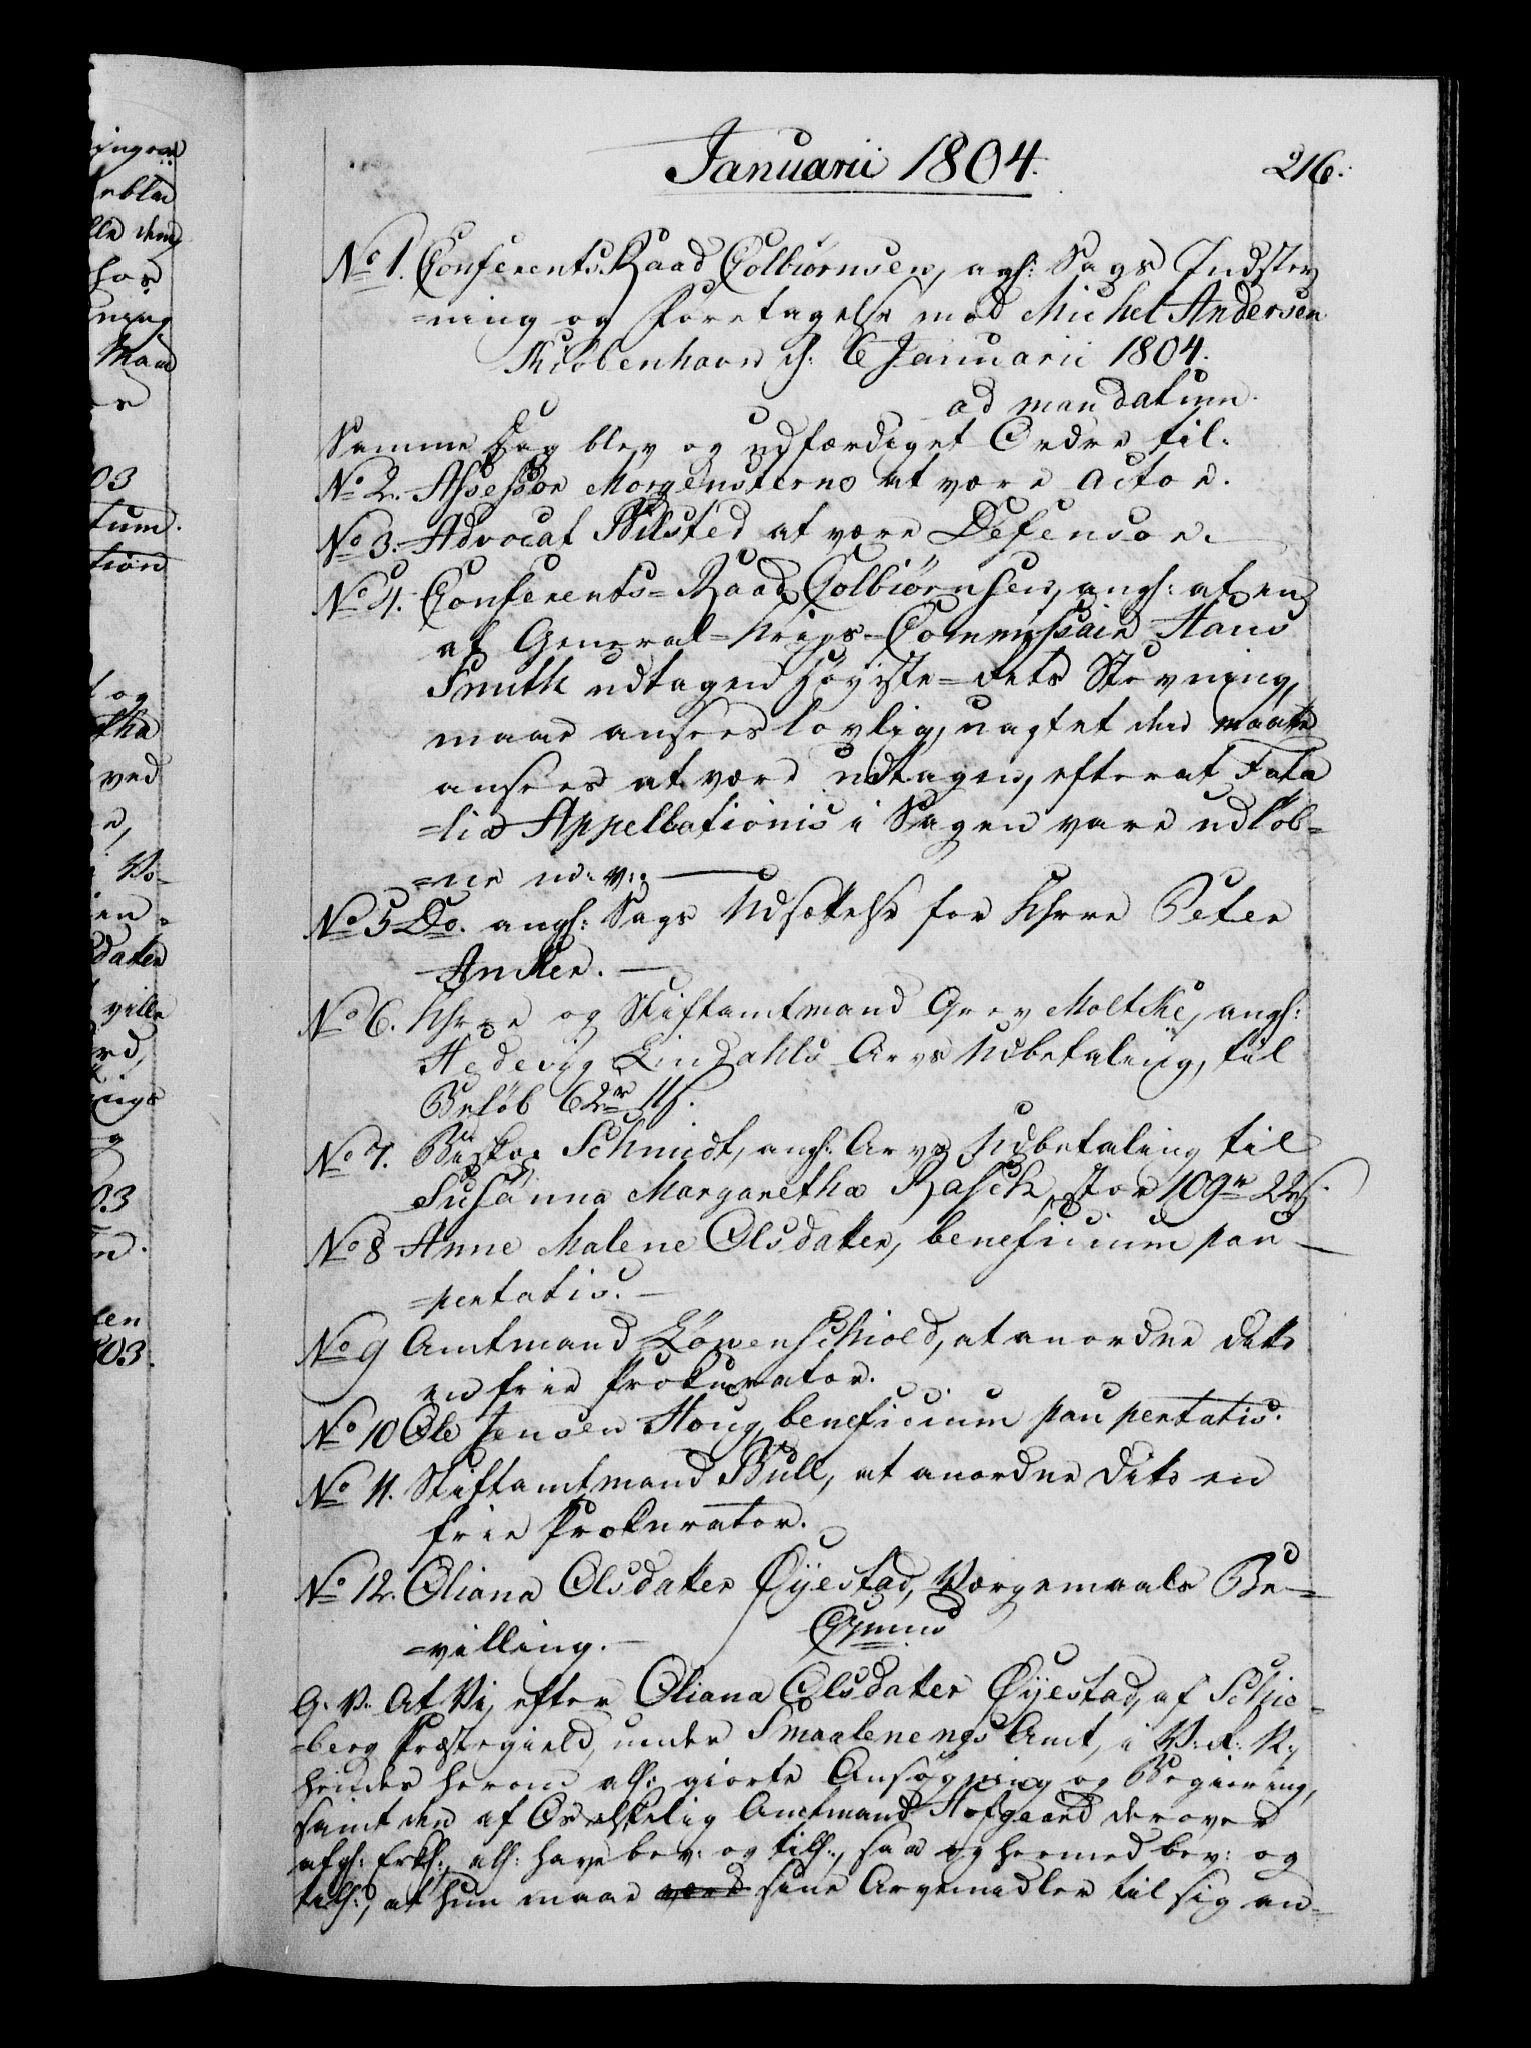 Januarii 1804.
216.
No 1. Conferents-Raad Colbiørnsen, angl: Sags Indstev
=ning og Foretagelse mod Michel Andersen
Kiøbenhavn d: 6 Januarii 1804.
ad mandatum.
Samme Dag blev og udfærdiget Ordre til:
No 2. Assessor Morgenstierne at være Actor.
No 3. Advocat Bilsted at være Defensor.
No 4. Conferents-Raad Colbiørnsen, angl: at en
af General-Krigs-Commissair Hans
Smith udtagen Høyeste-Rets Stevning,
maae ansees lovlig, uagtet den maatte
ansees at være udtagen, efterat Fata
=lia Appellationis i Sagen vare udløb=
=ne m: v:
No 5 Do. angl: Sags Udsættelse for Khrre Peter
Ancker.
No 6. Khrre og Stiftamtmand Grev Moltcke, angl:
Hedevig Lindahls Arvs Udbetaling, til
Beløb 62r 11s.
No 7. Biskop Schmidt, angl: Arvs Udbetaling til
Susanna Margaretha Rasch, stor 109r 22s.
No 8 Anne Malene Olsdatter, beneficium pau
=pertatis.
No 9 Amtmand Løvenschiold, at anordne dito
en frie Prokurator.
No 10 Ole Jensen Houg, beneficium paupertatis.
No 11. Stiftamtmand Bull, at anordne dito en
frie Prokurator.
No 12. Oliana Olsdatter Øyestad, Værgemaals Be=
=villing.
G. V. At Vi, efter Oliana Olsdatter Øyestad, af Schie=
=berg Præstegield, under Smaalenenes Amt, i V: R: N:,
hendes herom alls: giorte Ansøgning og Begiering,
samt den af Os elskelig Amtmand Hofgaard derover
afgl: Erkl:, alls: have bev: og till:, saa og hermed bev: og
till:, at hun maae være sine Arvemidler til sig an=